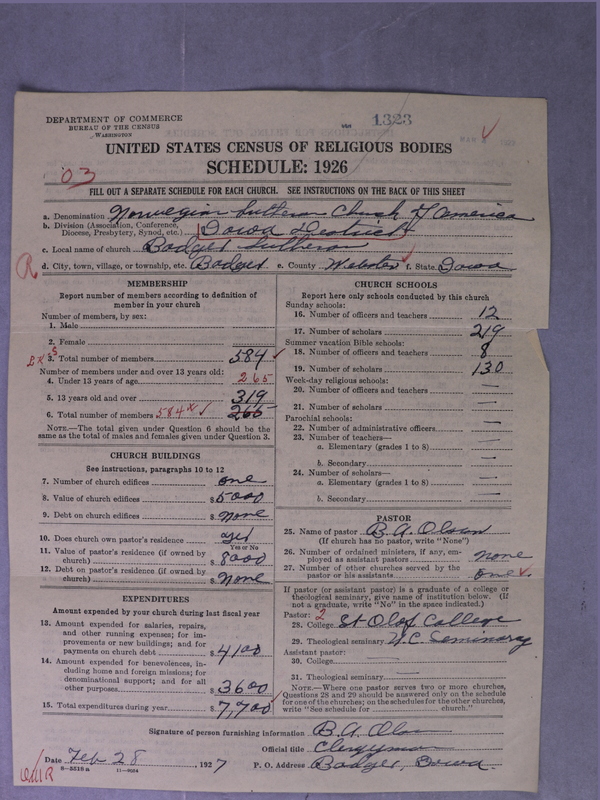 DEPARTMENT OF COMMERCE
BUREAU OF THE CENSUS
WASHINGTON
1323
UNITED STATES CENSUS OF RELIGIOUS BODIES
SCHEDULE: 1926
03
FILL OUT A SEPARATE SCHEDULE FOR EACH CHURCH. SEE INSTRUCTIONS ON THE BACK OF THIS SHEET
a. Denomination Norwegian Lutheran Church of America
b. Division (Association, Conference, Diocese, Presbytery, Synod, etc.) Iowa District
c. Local name of church Badger Lutheran
R d. City, town, village, or township, etc. Badger e. County Webster f. State Iowa
MEMBERSHIP
Report number of members according to definition of
member in your church
Number of members, by sex:
1. Male
2. Female
3. Total number of members 584
Number of members under and over 13 years old:
4. Under 13 years of age 265
5. 13 years old and over 319
6. Total number of members 584 265
NOTE.—The total given under Question 6 should be
same as the total of males and females given under Question 3.
CHURCH BUILDINGS
See instructions, paragraphs 10 to 12
7. Number of church edifices one
8. Value of church edifices $5000
9. Debt on church edifices $none
10. Does church own pastor's residence yes
Yes or No
11. Value of pastor's residence (if owned by
church) $8000
12. Debt on pastor's residence (if owned by
church) $none
EXPENDITURES
Amount expended by your church during last fiscal year
13. Amount expended for salaries, repairs,
and other running expenses; for im-
provements or new buildings; and for
payments on church debt $4100
14. Amount expended for benevolences, in-
cluding home and foreign missions; for
denominational support; and for all
other purposes $3600
15. Total expenditures during year $7,700
CHURCH SCHOOLS
Report here only schools conducted by this church
Sunday schools:
16. Number of officers and teachers 12
17. Number of scholars 219
Summer vacation Bible schools:
18. Number of officers and teachers 8
19. Number of scholars 130
Week-day religious schools:
20. Number of officers and teachers —
21. Number of scholars —
Parochial schools:
22. Number of administrative officers —
23. Number of teachers—
a. Elementary (grades 1 to 8) —
b. Secondary —
24. Number of scholars—
a. Elementary (grades 1 to 8) —
b. Secondary —
PASTOR
25. Name of pastor B. A. Olson
(If church has no pastor, write "None")
26. Number of ordained ministers, if any, em-
ployed as assistant pastors none
27. Number of other churches served by the
pastor or his assistants one
If pastor (or assistant pastor) is a graduate of a college or
theological seminary, give name of institution below. (If
not a graduate, write "No" in the space indicated.)
Pastor: 2
28. College St Olaf College
29. Theological seminary U. C. Seminary
Assistant pastor:
30. College
31. Theological seminary
NOTE.—Where one pastor serves two or more churches,
Questions 28 and 29 should be answered only on the schedule
for one of the churches; on the schedules for the other churches,
write "See schedule for ........ church."
Signature of person furnishing information B. A. Olson
Official title Clergyman
Date Feb 28, 1927 P. O. Address Badger, Iowa.
8—5518a 11—9084